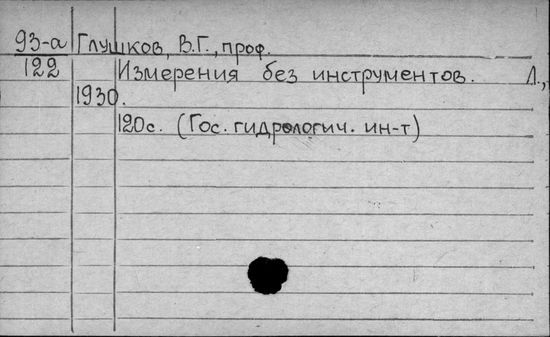 93-а Глушков, В.Г., проф.
122 Измерения без инструментов. Л.,
1930.
120с. (Гос. гидрологич. ин-т)